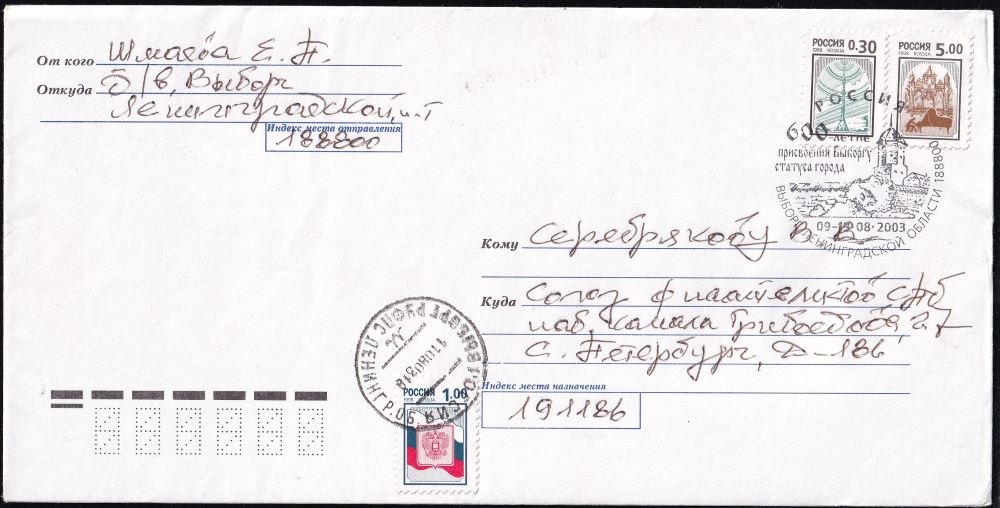 От кого Шмаева Е. П.
Откуда п/в, Выборг
Ленинградской,
Индекс места отправления
188800
РОССИЯ 0.30
1998 ROSSIJA
РОССИЯ 5.00
1998 ROSSIJA
РОССИЯ
600-ЛЕТИЕ
присвоения Выборгу
статуса города
09-12.08.2003
ВЫБОРГ ЛЕНИНГРАДСКОЙ ОБЛАСТИ 188800
Кому Серебрякову В. В.
Куда Союз филателистов СПб
наб. канала Грибоедова, 27
С. Петербург, Д-186
Индекс места назначения
191186
ВЫБОРГ РУФПС ЛЕНИНГР.ОБ.
РОССИЯ
110803
РОССИЯ 1.00
1998 ROSSIJA